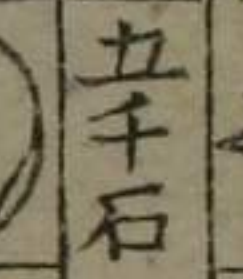 五千石